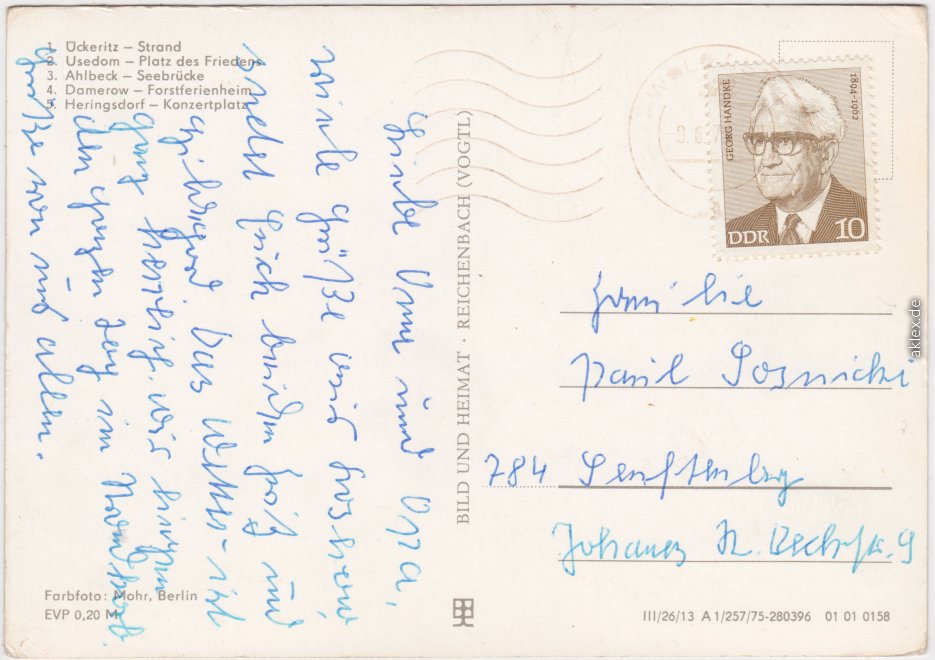 1. Ückeritz – Strand
2. Usedom – Platz des Friedens
3. Ahlbeck – Seebrücke
4. Damerow – Forstferienheim
5. Heringsdorf – Konzertplatz
Liebe Omi und Opa,
viele Grüße aus
sendet Euch beiden und
Das Wetter ist
ganz herrlich. Wir liegen
den ganzen Tag im
Grüße von uns allen.
Farbfoto: Mohr, Berlin
EVP 0,20 M
BILD UND HEIMAT · REICHENBACH (VOGTL)
GEORG HANDKE
1894-1962
DDR 10
Familie
Paul
784 Senftenberg
Johannes R. 9
III/26/13 A 1/257/75-280396 01 01 0158
aklex.de